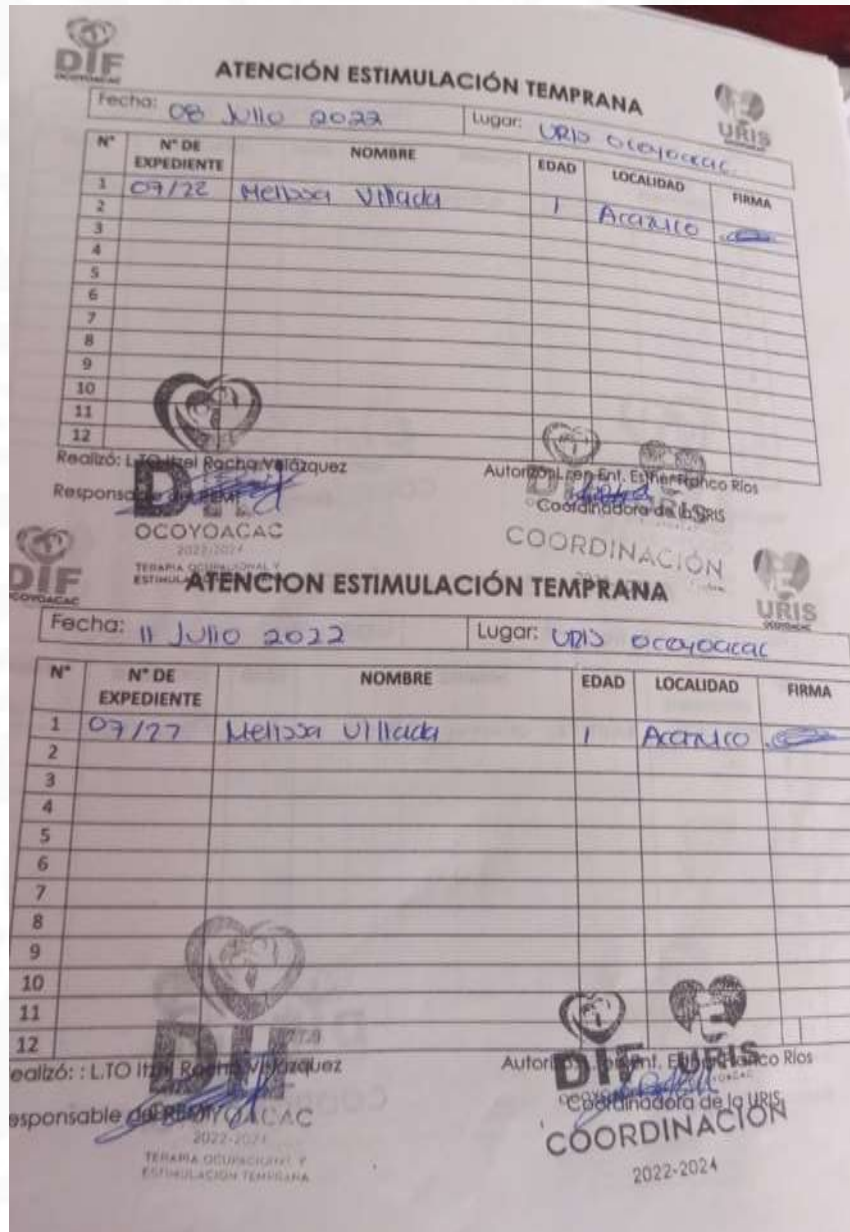 DIF
OCOYOACAC
ATENCIÓN ESTIMULACIÓN TEMPRANA
URIS
Fecha: 08 Julio 2022 Lugar: URIS Ocoyoacac
N° N° DE EXPEDIENTE NOMBRE EDAD LOCALIDAD FIRMA
1 07/22 Melissa Villada 1 Acazulco
2
3
4
5
6
7
8
9
10
11
12
Realizó: L.TO Itzel Rocha Velázquez Autorizó: L. en Ent. Esther Franco Ríos
Responsable del Coordinadora de la URIS
DIF
OCOYOACAC
2022-2024
TERAPIA OCUPACIONAL Y
ESTIMULACIÓN
COORDINACIÓN
DIF
OCOYOACAC
ATENCION ESTIMULACIÓN TEMPRANA
URIS
Fecha: 11 Julio 2022 Lugar: URIS Ocoyoacac
N° N° DE EXPEDIENTE NOMBRE EDAD LOCALIDAD FIRMA
1 07/22 Melissa Villada 1 Acazulco
2
3
4
5
6
7
8
9
10
11
12
ealizó: : L.TO Itzel Rocha Velázquez Autorizó: Ent. Esther Franco Ríos
esponsable del Coordinadora de la URIS
DIF
OCOYOACAC
2022-2024
TERAPIA OCUPACIONAL Y
ESTIMULACIÓN TEMPRANA
DIF URIS
COORDINACIÓN
2022-2024